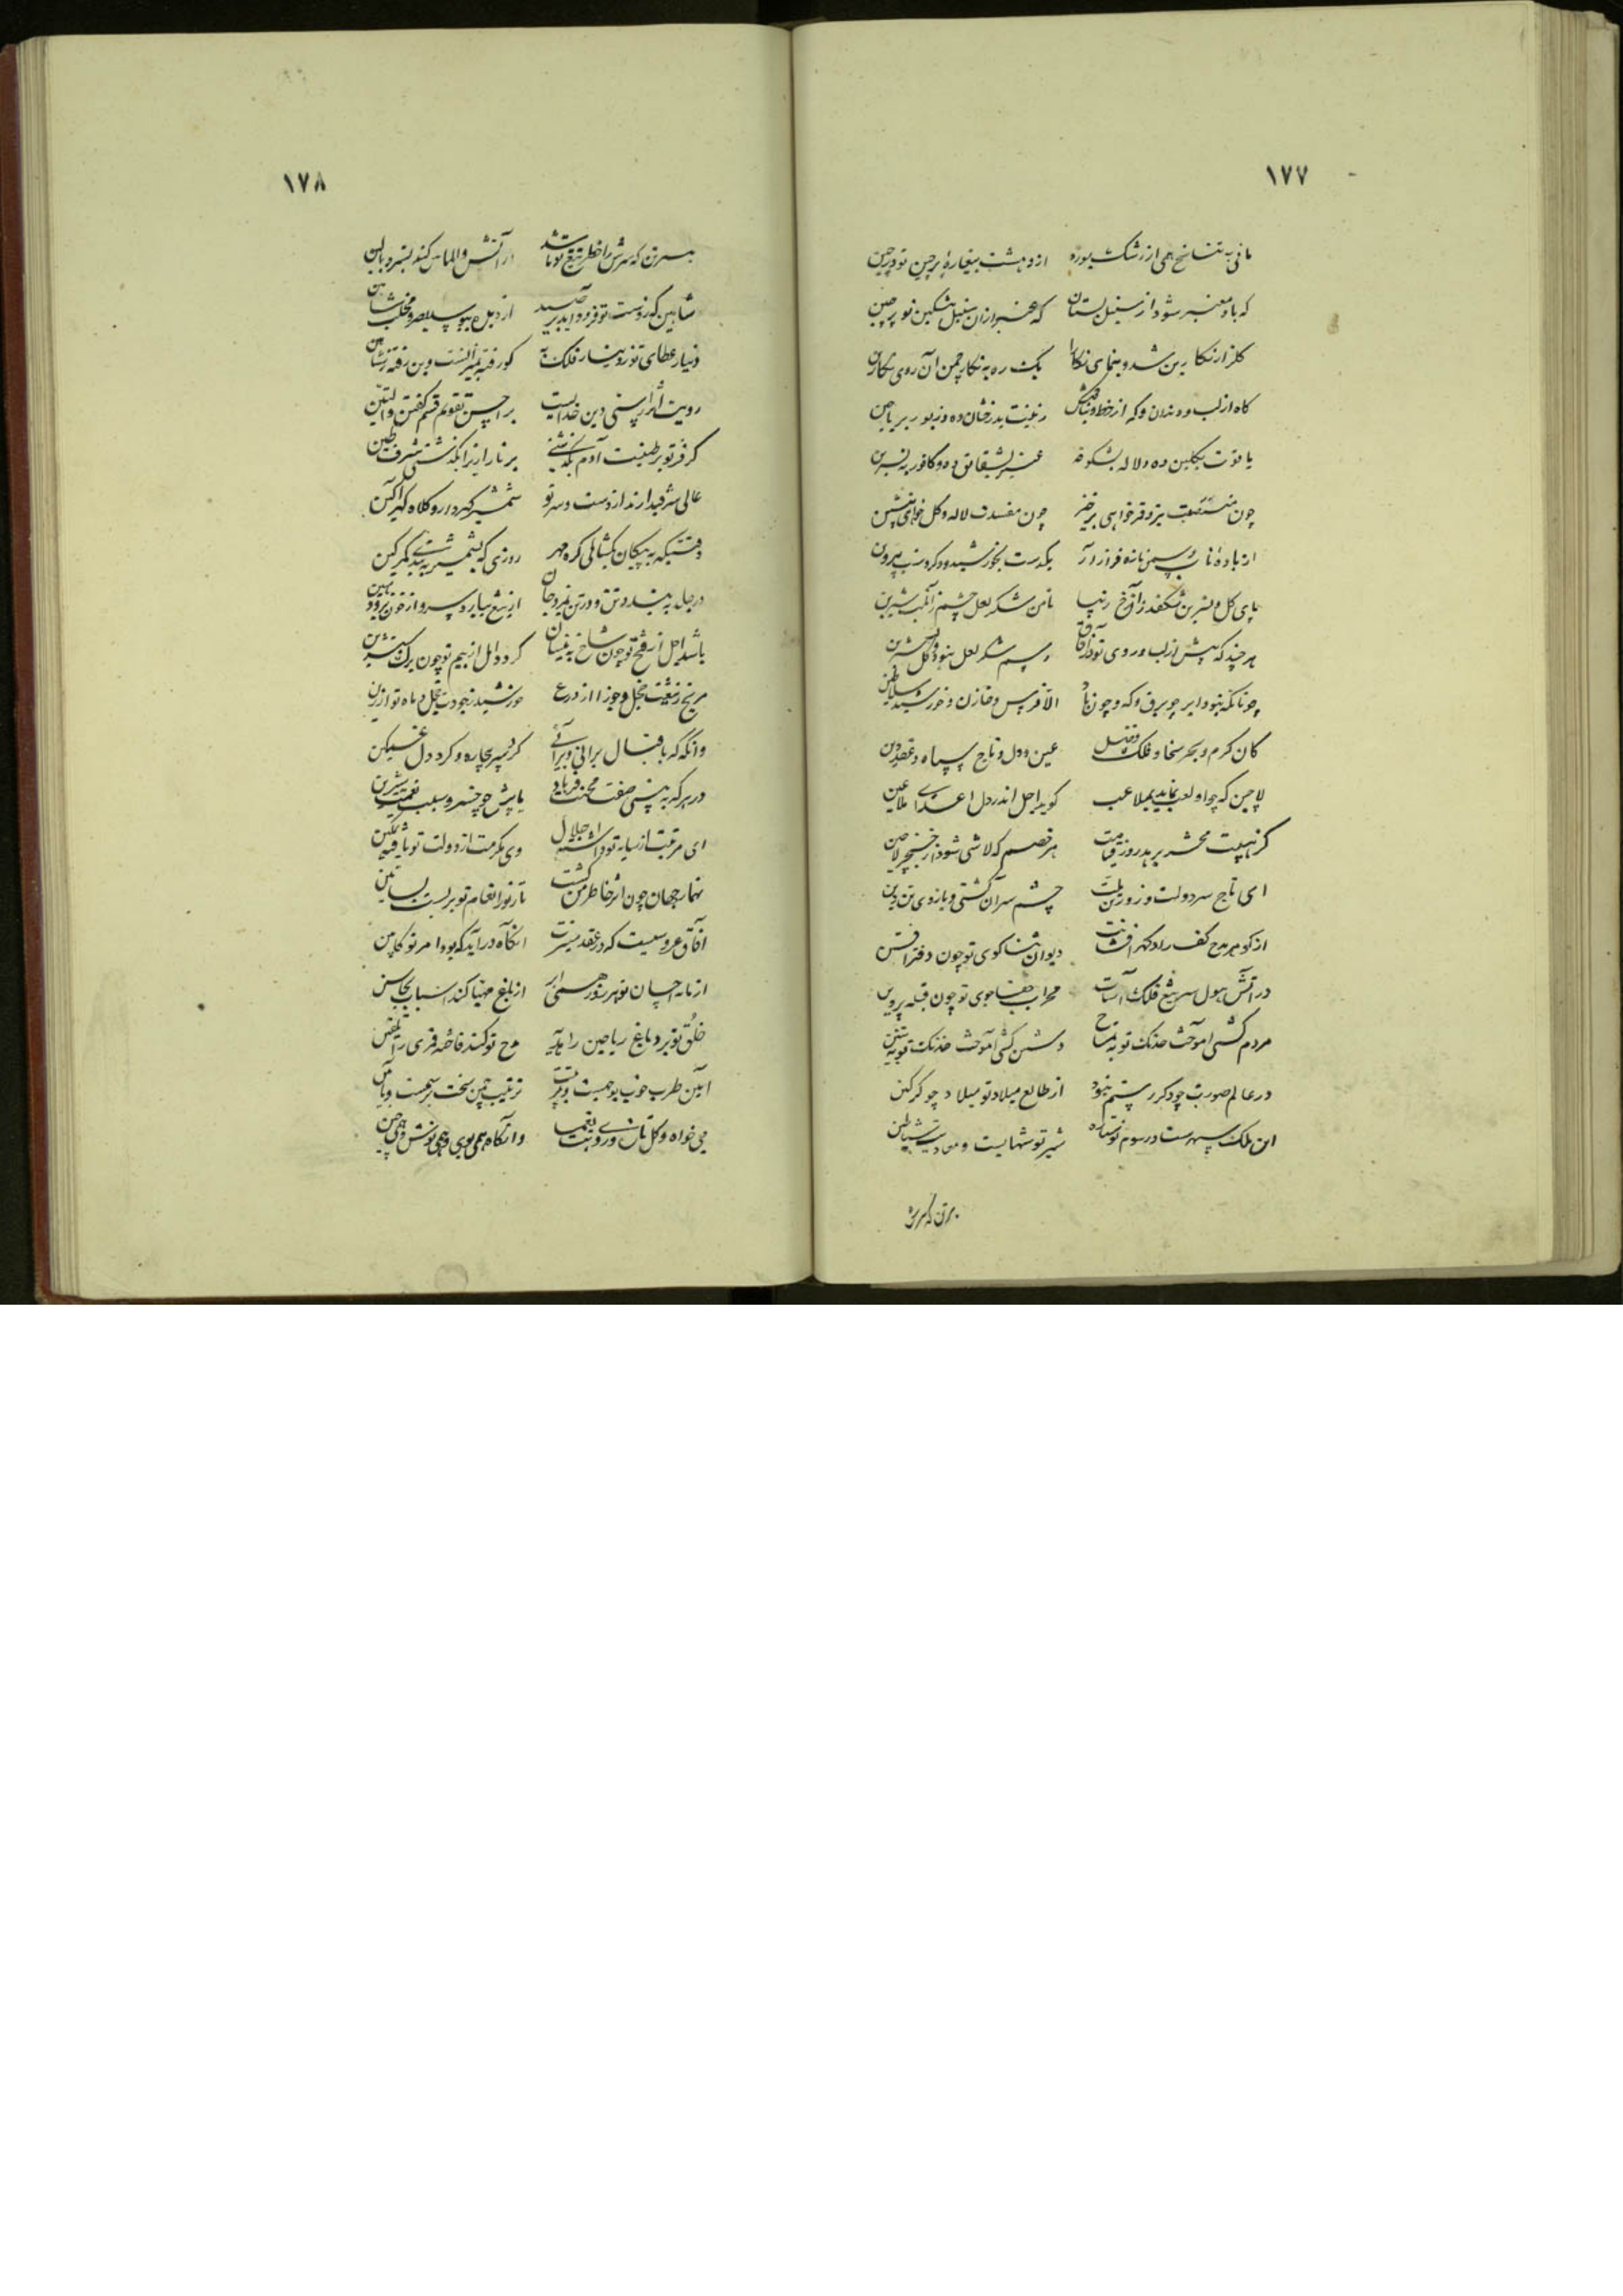 ۱۷۷
مانی به تناسخ همی از رشک بپوزد از دهشت بیغاره پرچین تو در چین
که باد معنبر شود از سنبل بستان که عنبر از آن سنبل مشکین تو پرچین
گلزار نگارین شد و بنمای نگارا یک ره به نگار چمن آن روی نگارین
گاه از لب و دندان و که از خط و بناگوش زینت بدرخشان ده و زیور بریاحین
یاقوت بگلبن ده و لاله بشکوفه عنبر بشقایق ده و کافور به نسرین
چون برخیز چون لاله و گل خواهی بنشین
از باده ناب و سمن تازه فراز آر یکدست بخورشید و دکر دست بپروین
پای گل و نسرین شکفد زان رخ زیبا تا من شکر لعل چشم زان لب شیرین
هر چند که پیش از لب و روی تو در آفاق رسم شکر لعل نبود و گل نسرین
چونانکه نبود ابر چو برق و که و چون باد الا فرس و خازن و خورشید سلاطین
کان کرم و بحر سخا و فلک فضل عین دول و تاج سپاه و عقد دین
لاچین که چو او لعب نماید بملاعب گوید اجل اندر دل اعدای ملاعین
گر هیبت محشر برهد روز قیامت هر خصم که لاشی شود از خنجر لاچین
ای تاج سر دولت و زور تن ملت چشم سر آن گشتی و بازوی تن دین
از گوهر مدح کف راد گهر افشانت دیوان ثناگوی تو چون دفتر
در آتش هول سر تیغ فلک آسات محراب جفاجوی تو چون قبله برزین
مردم کشی آموخت خدنک تو به تمساح دشمن کشی آموخت خدنک تو به تنین
در عالم صورت چو دکر رستم نبود از طالع میلاد تو میلاد چو گرگین
این ملک سپهرست و رسوم تو ستاره تیر تو شهابست و معادیت شیاطین
بر تن که سرش
۱۷۸
بر تن که سرش را خطر تیغ تو باشد از آتش و الماس کند بستر و بالین
شاهین که ز دست تو فرود آید بر صید از دبل و مخلب شاهین
دینار عطای تو ز دینار فلک به کو رفته بمیزانست و این رفته ز شاهین
رویت اثر راستی دین خدایست بر احسن تقویم قسم گفتن والتین
گر فر تو بر طینت آدم نگذشتی بر نار ز انگذشتی شرف طین
عالی شرفی دارند از دست و سر تو شمشیر گهردار و کلاه گهر آکین
وقتیکه به پیکان بگشائی گره مهر روزی که بشمشیر ببندی کمر کین
در جلد به بندد تن و در تن بفرد جان از تیغ ببارد سر و از خون برود هین
باشد اجل از فتح تو چون شاخ به نیسان گردد امل از بیم تو چون برگ بتشرین
مریخ ز تیغت خجل و جوزا از درع خورشید ز جودت خجل و ماه تو از زین
وانگه که باقبال برانی و برآئی گردی سپر چاره و گرد دل غمگین
در هر که به بینی صفت محنت فرهاد یابیش چو خسرو سبب نعمت شیرین
ای مرتبت از سایه تو داشته اجلال وی مکرمت از دولت تو یافته تمکین
تیمار جهان چون اثر خاطر من گشت تا زنور انعام تو بر بست بساتین
آفاق عروسیست که در عقد میسرت آنگاه در آید که بود امر تو کابین
از مایه احسان تو هر روز همی ابر از باغ مهیا کند اسباب مجانین
خلق تو برد باغ ریاحین را هدیه مدح تو کند فاخته قمری را تلقین
آیین طرب خوب بوجهست و ترتیب چمن سخت برسمست و بآیین
می خواه و گل تازه و رود بت یغما وانگاه همی بوی و همی نوش و همی چین